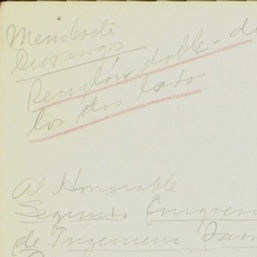 Membrete
Durango
Renglón doble - de
los dos lados
Al Honorable
Segundo Congreso
de Ingeniería San